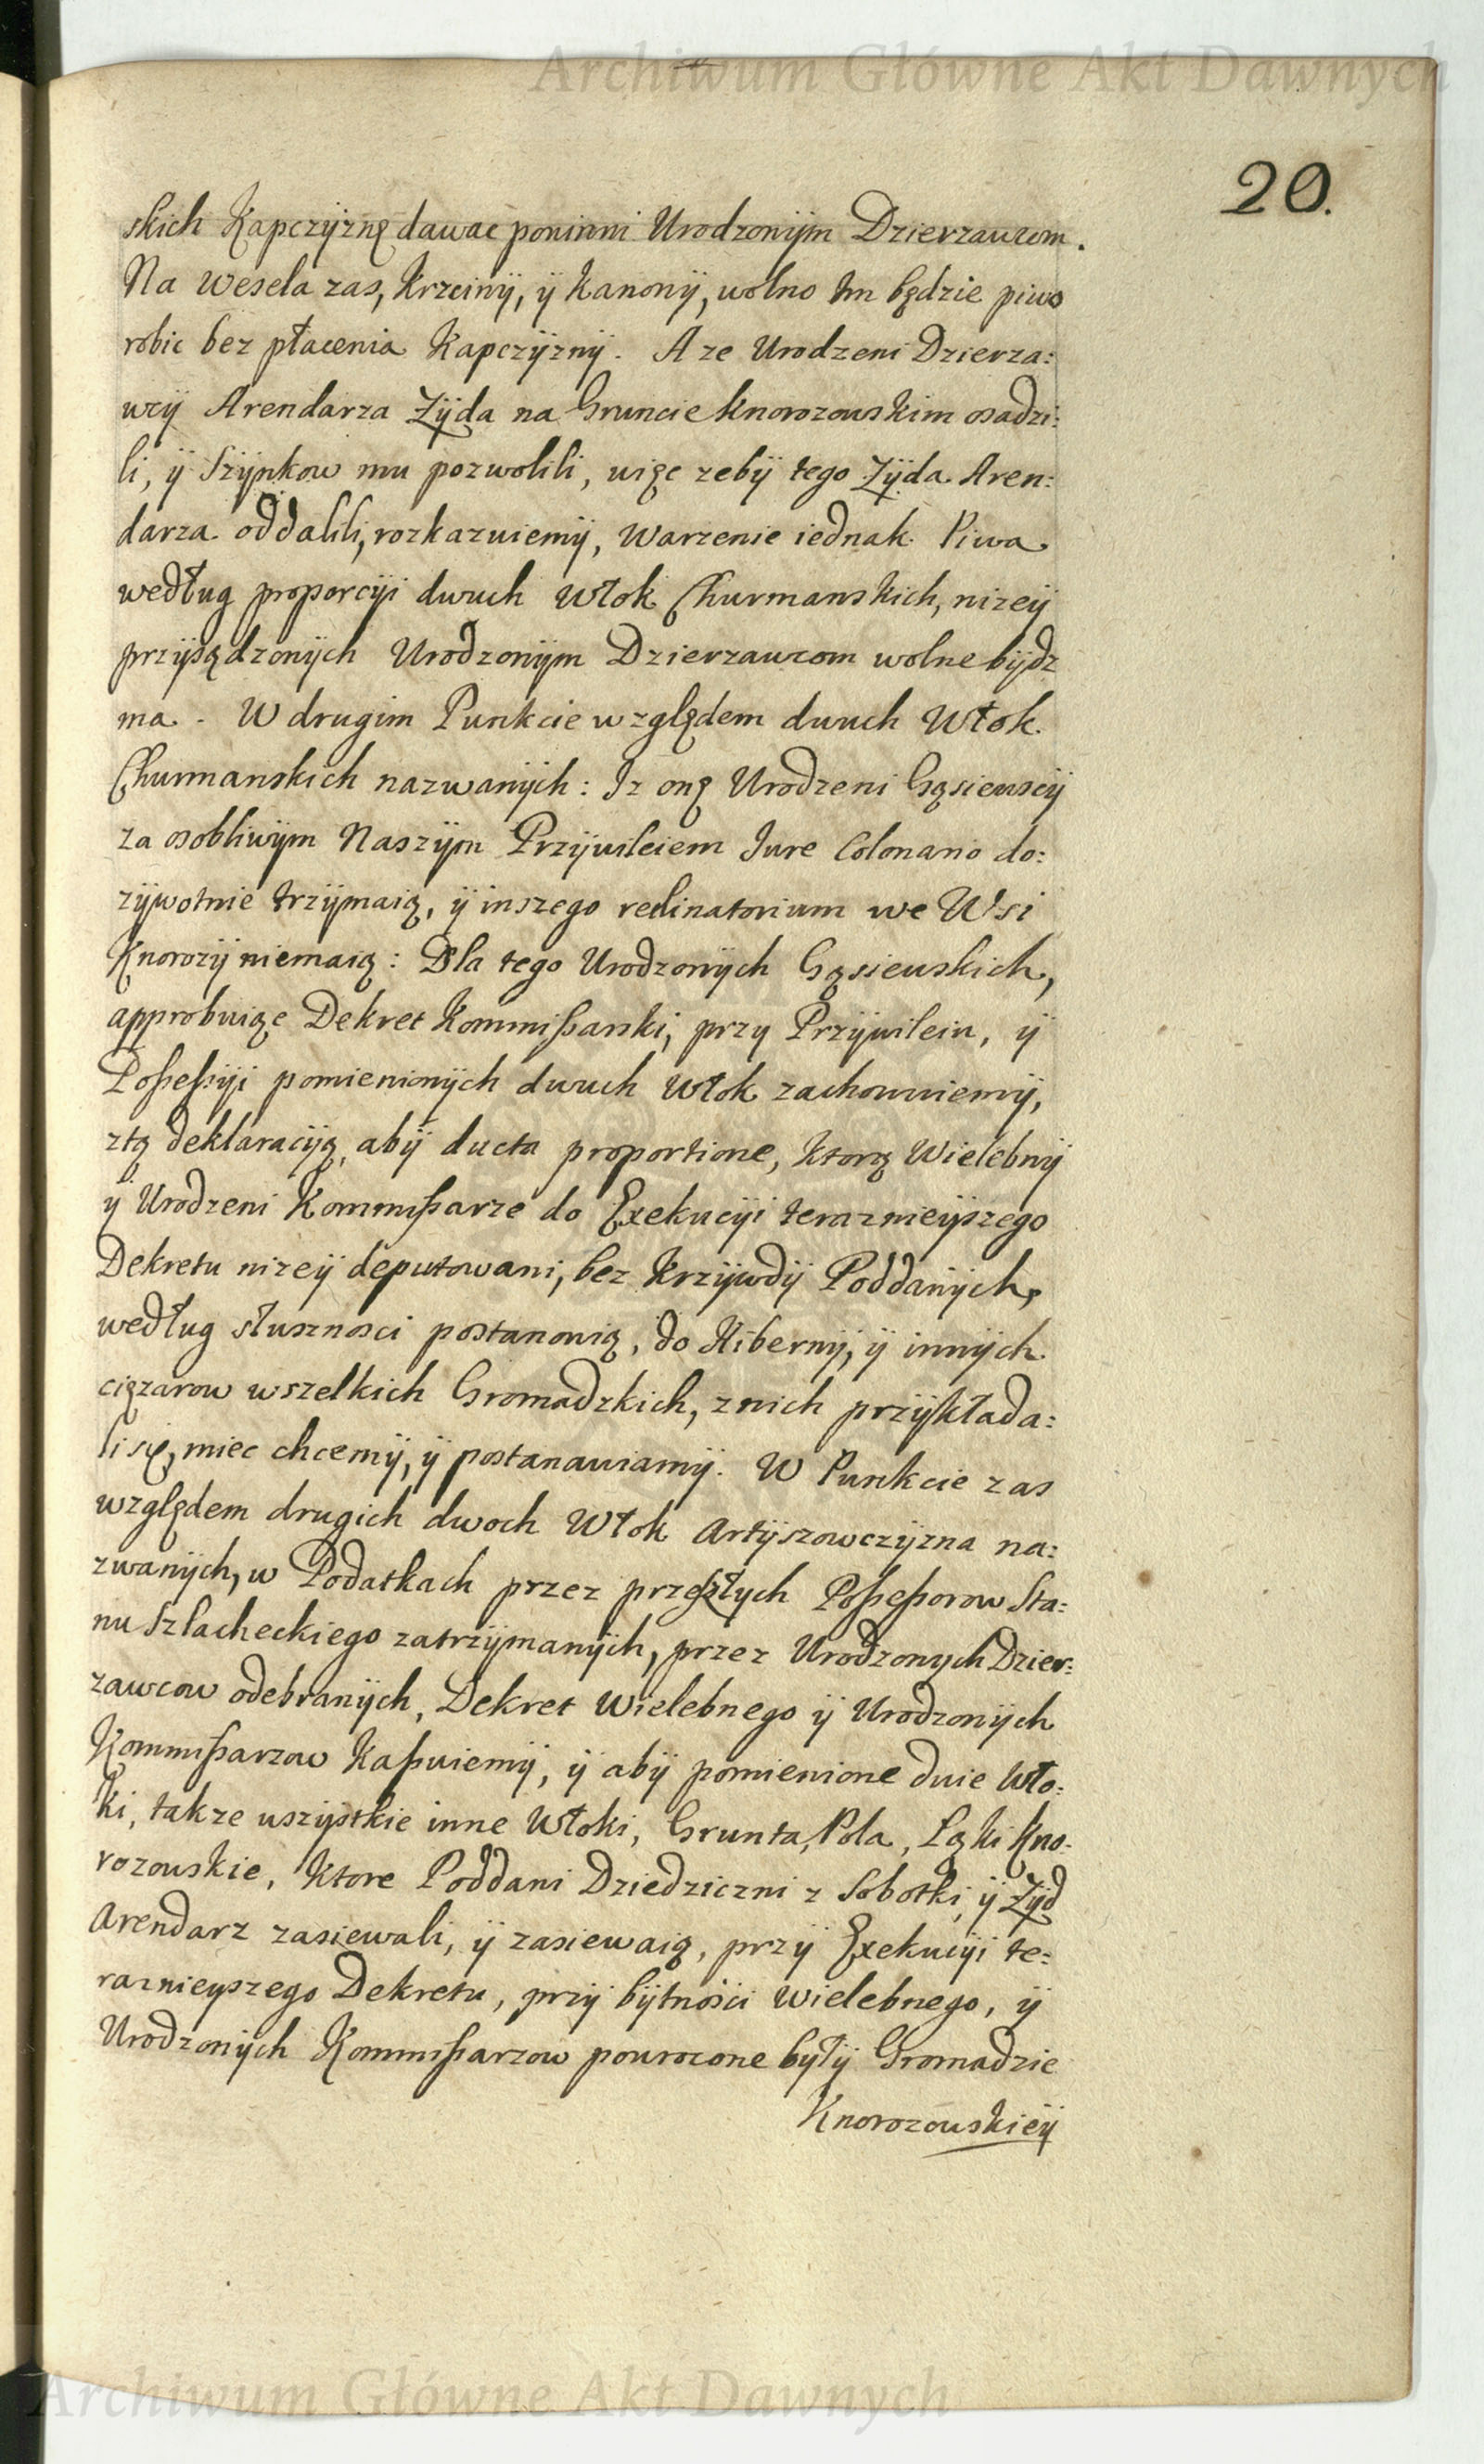 Archiwum Główne Akt Dawnych
20.
skich Kapczÿznę dawac powinni Urodzonÿm Dzierzawcom.
Na Wesela zas, Krzcinÿ, ÿ Kanonÿ, wolno Im będzie piwo
robic bez płacenia Kapczÿznÿ. A ze Urodzeni Dzierza:
wcÿ Arendarza Zÿda na Gruncie Knorozowskim osadzi:
li, ÿ Szÿnkow mu pozwolili, więc zebÿ tego Zÿda Aren:
darza oddalili, rozkazuiemÿ, Warzenie iednak Piwa
według proporcÿi dwuch Włok Churmanskich, nizeÿ
przÿsądzonÿch Urodzonÿm Dzierzawcom wolne bÿdz
ma. W drugim Punkcie względem dwuch Włok
Churmanskich nazwanÿch: Iz onę Urodzeni Gąsiewscÿ
za osobliwÿm Naszÿm Przÿwileiem Iure Colonario do:
zÿwotnie trzÿmaią, ÿ inszego reclinatorium we Wsi
Knorozÿ niemaią: Dla tego Urodzonÿch Gąsiewskich,
approbuiąc Dekret Kommißarski, przy Przÿwileiu, ÿ
Poßeßÿi pomienionÿch dwuch Włok zachowuiemÿ,
ztą deklaracÿą, abÿ ducta proportione, Ktorą Wielebnÿ
ÿ Urodzeni Kommißarze do Exekucÿi teraznieÿszego
Dekretu nizeÿ deputowani, bez Krzÿwdÿ Poddanÿch,
według słusznosci postanowią, do Hibernÿ, ÿ innÿch
cięzarow wszelkich Gromadzkich, znich przÿkłada:
li się, miec chcemÿ, ÿ postanawiamÿ. W Punkcie zas
względem drugich dwoch Włok Artÿszowczÿzna na:
zwanÿch, w Podatkach przez przeszłych Poßeßorow Sta:
nu Szlacheckiego zatrzÿmanÿch, przez Urodzonych Dzier:
zawcow odebranÿch, Dekret Wielebnego ÿ Urodzonÿch
Kommißarzow Kaßuiemÿ, ÿ abÿ pomienione dwie Wło:
ki, takze wszÿstkie inne Włoki, Grunta, Pola, Łąki Kno:
rozowskie, Ktore Poddani Dziedziczni z Sobotki, ÿ Zÿd
Arendarz zasiewali, ÿ zasiewaią, przÿ Exekucÿi te:
raznieyszego Dekretu, przÿ bÿtności Wielebnego, ÿ
Urodzonÿch Kommißarzow powrocone bÿłÿ Gromadzie
Knorozowskieÿ
Archiwum Główne Akt Dawnych